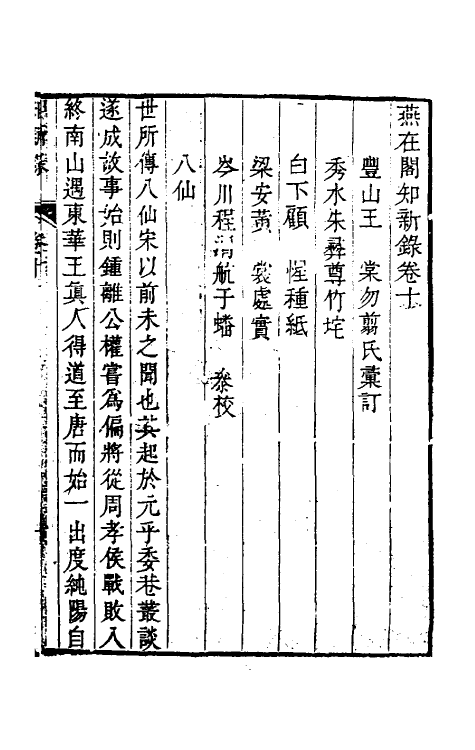 燕在閣知新錄卷十
豐山王　棠勿翦氏彚訂
秀水朱彝尊竹垞
白下顧　惺種紙
梁安黃　裳處實
岑川程　航于蟠　叅校
八仙
世所傳八仙宋以前未之聞也其起於元乎委巷叢談
遂成故事始則鍾離公權嘗為偏將從周孝侯戰敗入
終南山遇東華王真人得道至唐而始一出度純陽自